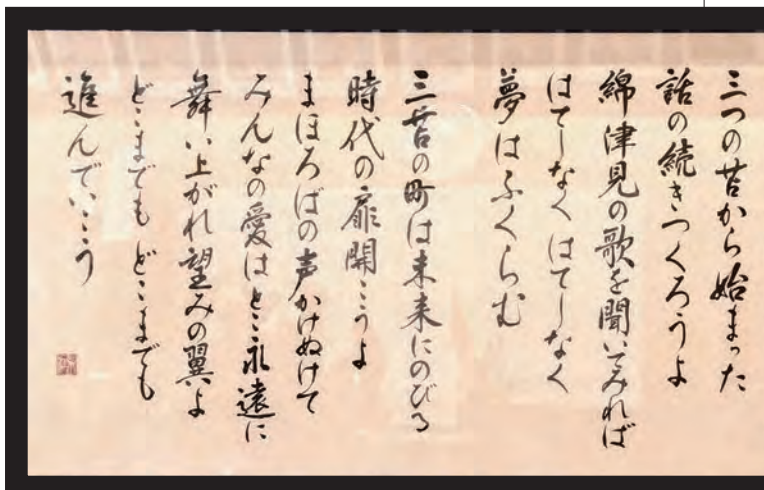 三つの苫から始まった
話の続きつくろうよ
綿津見の歌を聞いてみれば
はてしなく はてしなく
夢はふくらむ
三苫の町は未来にのびる
時代の扉開こうよ
まほろばの声かけぬけて
みんなの愛はとこ永遠に
舞い上がれ望みの翼よ
どこまでも どこまでも
進んでいこう